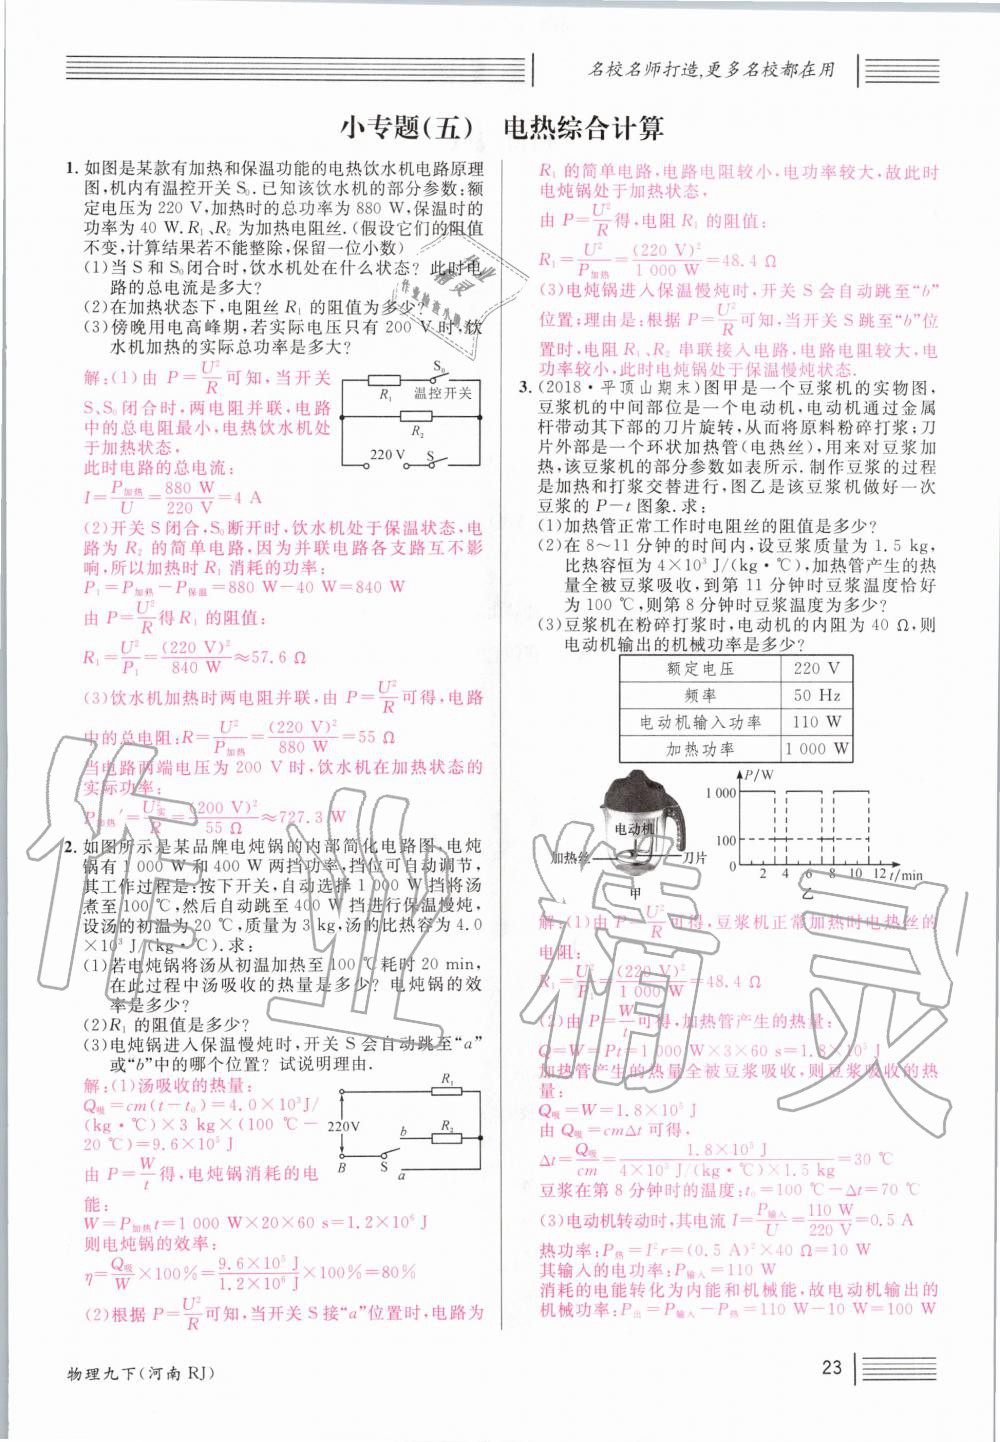 名校名师打造,更多名校都在用
小专题(五) 电热综合计算
1. 如图是某款有加热和保温功能的电热饮水机电路原理
图,机内有温控开关 S₀. 已知该饮水机的部分参数:额
定电压为 220 V,加热时的总功率为 880 W,保温时的
功率为 40 W. R₁、R₂ 为加热电阻丝. (假设它们的阻值
不变,计算结果若不能整除,保留一位小数)
(1)当 S 和 S₀ 闭合时,饮水机处在什么状态? 此时电
路的总电流是多大?
(2)在加热状态下,电阻丝 R₁ 的阻值为多少?
(3)傍晚用电高峰期,若实际电压只有 200 V 时,饮
水机加热的实际总功率是多大?
解:(1)由 P=U²/R 可知,当开关
S、S₀ 闭合时,两电阻并联,电路
中的总电阻最小,电热饮水机处
于加热状态,
此时电路的总电流:
I=P加热/U=880 W/220 V=4 A
(2)开关 S 闭合,S₀ 断开时,饮水机处于保温状态,电
路为 R₂ 的简单电路,因为并联电路各支路互不影
响,所以加热时 R₁ 消耗的功率:
P₁=P加热-P保温=880 W-40 W=840 W
由 P=U²/R 得 R₁ 的阻值:
R₁=U²/P₁=(220 V)²/840 W≈57.6 Ω
(3)饮水机加热时两电阻并联,由 P=U²/R 可得,电路
中的总电阻:R=U²/P加热=(220 V)²/880 W=55 Ω
当电路两端电压为 200 V 时,饮水机在加热状态的
实际功率:
P加热′=U²实/R=(200 V)²/55 Ω≈727.3 W
R₁
S₀
温控开关
R₂
220 V
S
2. 如图所示是某品牌电炖锅的内部简化电路图、电炖
锅有 1 000 W 和 400 W 两挡功率,挡位可自动调节,
其工作过程是:按下开关,自动选择 1 000 W 挡将汤
煮至 100 ℃,然后自动跳至 400 W 挡进行保温慢炖,
设汤的初温为 20 ℃,质量为 3 kg,汤的比热容为 4.0
×10³ J/(kg·℃). 求:
(1)若电炖锅将汤从初温加热至 100 ℃耗时 20 min,
在此过程中汤吸收的热量是多少? 电炖锅的效
率是多少?
(2)R₁ 的阻值是多少?
(3)电炖锅进入保温慢炖时,开关 S 会自动跳至“a”
或“b”中的哪个位置? 试说明理由.
解:(1)汤吸收的热量:
Q吸=cm(t-t₀)=4.0×10³J/
(kg·℃)×3 kg×(100 ℃-
20 ℃)=9.6×10⁵ J
由 P=W/t 得,电炖锅消耗的电
能:
W=P加热t=1 000 W×20×60 s=1.2×10⁶ J
则电炖锅的效率:
η=Q吸/W×100%=9.6×10⁵ J/1.2×10⁶ J×100%=80%
(2)根据 P=U²/R 可知,当开关 S 接“a”位置时,电路为
R₁
220V
b
R₂
B
S
a
R₁ 的简单电路,电路电阻较小,电功率较大,故此时
电炖锅处于加热状态,
由 P=U²/R 得,电阻 R₁ 的阻值:
R₁=U²/P加热=(220 V)²/1 000 W=48.4 Ω
(3)电炖锅进入保温慢炖时,开关 S 会自动跳至“b”
位置;理由是:根据 P=U²/R 可知,当开关 S 跳至“b”位
置时,电阻 R₁、R₂ 串联接入电路,电路电阻较大,电
功率较小,此时电炖锅处于保温慢炖状态.
3. (2018·平顶山期末)图甲是一个豆浆机的实物图,
豆浆机的中间部位是一个电动机,电动机通过金属
杆带动其下部的刀片旋转,从而将原料粉碎打浆;刀
片外部是一个环状加热管(电热丝),用来对豆浆加
热,该豆浆机的部分参数如表所示. 制作豆浆的过程
是加热和打浆交替进行,图乙是该豆浆机做好一次
豆浆的 P-t 图象. 求:
(1)加热管正常工作时电阻丝的阻值是多少?
(2)在 8~11 分钟的时间内,设豆浆质量为 1.5 kg,
比热容恒为 4×10³J/(kg·℃),加热管产生的热
量全被豆浆吸收,到第 11 分钟时豆浆温度恰好
为 100 ℃,则第 8 分钟时豆浆温度为多少?
(3)豆浆机在粉碎打浆时,电动机的内阻为 40 Ω,则
电动机输出的机械功率是多少?
额定电压 220 V
频率 50 Hz
电动机输入功率 110 W
加热功率 1 000 W
电动机
加热丝
刀片
甲
P/W
1 000
100
0 2 4 6 8 10 12 t/min
乙
解:(1)由 P=U²/R 可得,豆浆机正常加热时电热丝的
电阻:
R₁=U²/P₁=(220 V)²/1 000 W=48.4 Ω
(2)由 P=W/t 可得,加热管产生的热量:
Q=W=Pt=1 000 W×3×60 s=1.8×10⁵J
加热管产生的热量全被豆浆吸收,则豆浆吸收的热
量:
Q吸=W=1.8×10⁵ J
由 Q吸=cmΔt 可得,
Δt=Q吸/cm=1.8×10⁵ J/4×10³ J/(kg·℃)×1.5 kg=30 ℃
豆浆在第 8 分钟时的温度:t₀=100 ℃-Δt=70 ℃
(3)电动机转动时,其电流 I=P输入/U=110 W/220 V=0.5 A
热功率:P热=I²r=(0.5 A)²×40 Ω=10 W
其输入的电功率:P输入=110 W
消耗的电能转化为内能和机械能,故电动机输出的
机械功率:P出=P输入-P热=110 W-10 W=100 W
物理九下(河南 RJ)
23
作业精灵